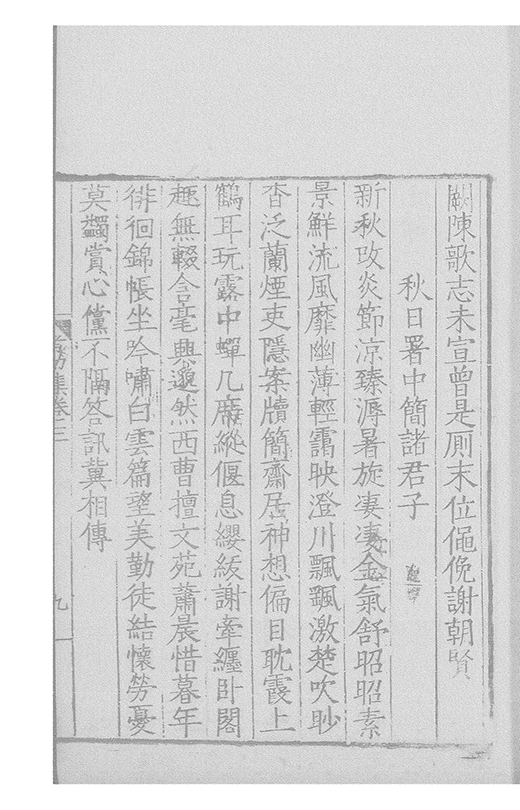 闕陳歌志未宣曾是厠末位僶俛謝朝賢
秋日署中簡諸君子
新秋改炎節涼臻溽暑旋淒淒金氣舒昭昭素
景鮮流風靡幽薄輕靄映澄川飄飄激楚吹眇
杳泛蘭煙吏隱案牘簡齋居神想偏目耽霞上
鶴耳玩露中蟬几席縱偃息纓紱謝牽纏卧閣
趣無輟含毫興邈然西曹擅文苑蕭晨惜暮年
徘徊錦帳坐吟嘯白雲篇望美勤徒結懷勞憂
莫蠲賞心儻不隔答訊冀相傳
集卷三
九